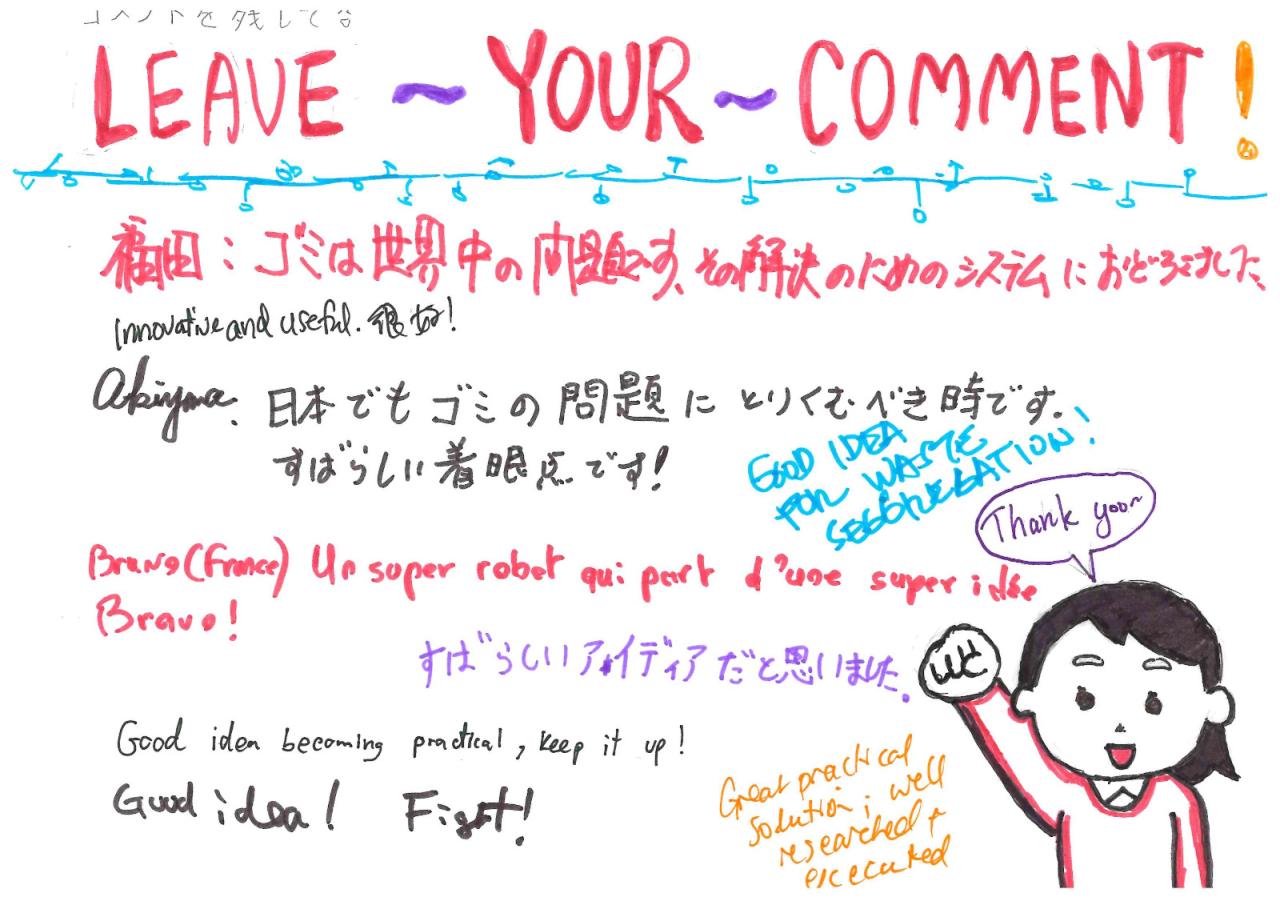 コメントを残して
LEAVE ~ YOUR ~ COMMENT!
福田：ゴミは世界中の問題です、その解決のためのシステムにおどろきました、
Innovative and useful. 很好!
Akiyma. 日本でもゴミの問題にとりくむべき時です.
すばらしい着眼点です!
GOOD IDEA
FOR WASTE
SEGGREGATION!
Thank you~
Bruno (France) Un super robot qui part d'une super idée
Bravo!
すばらしいアイディアだと思いました.
Good idea becoming practical, keep it up!
Good idea! Fight!
Great practical
solution; well
researched +
executed